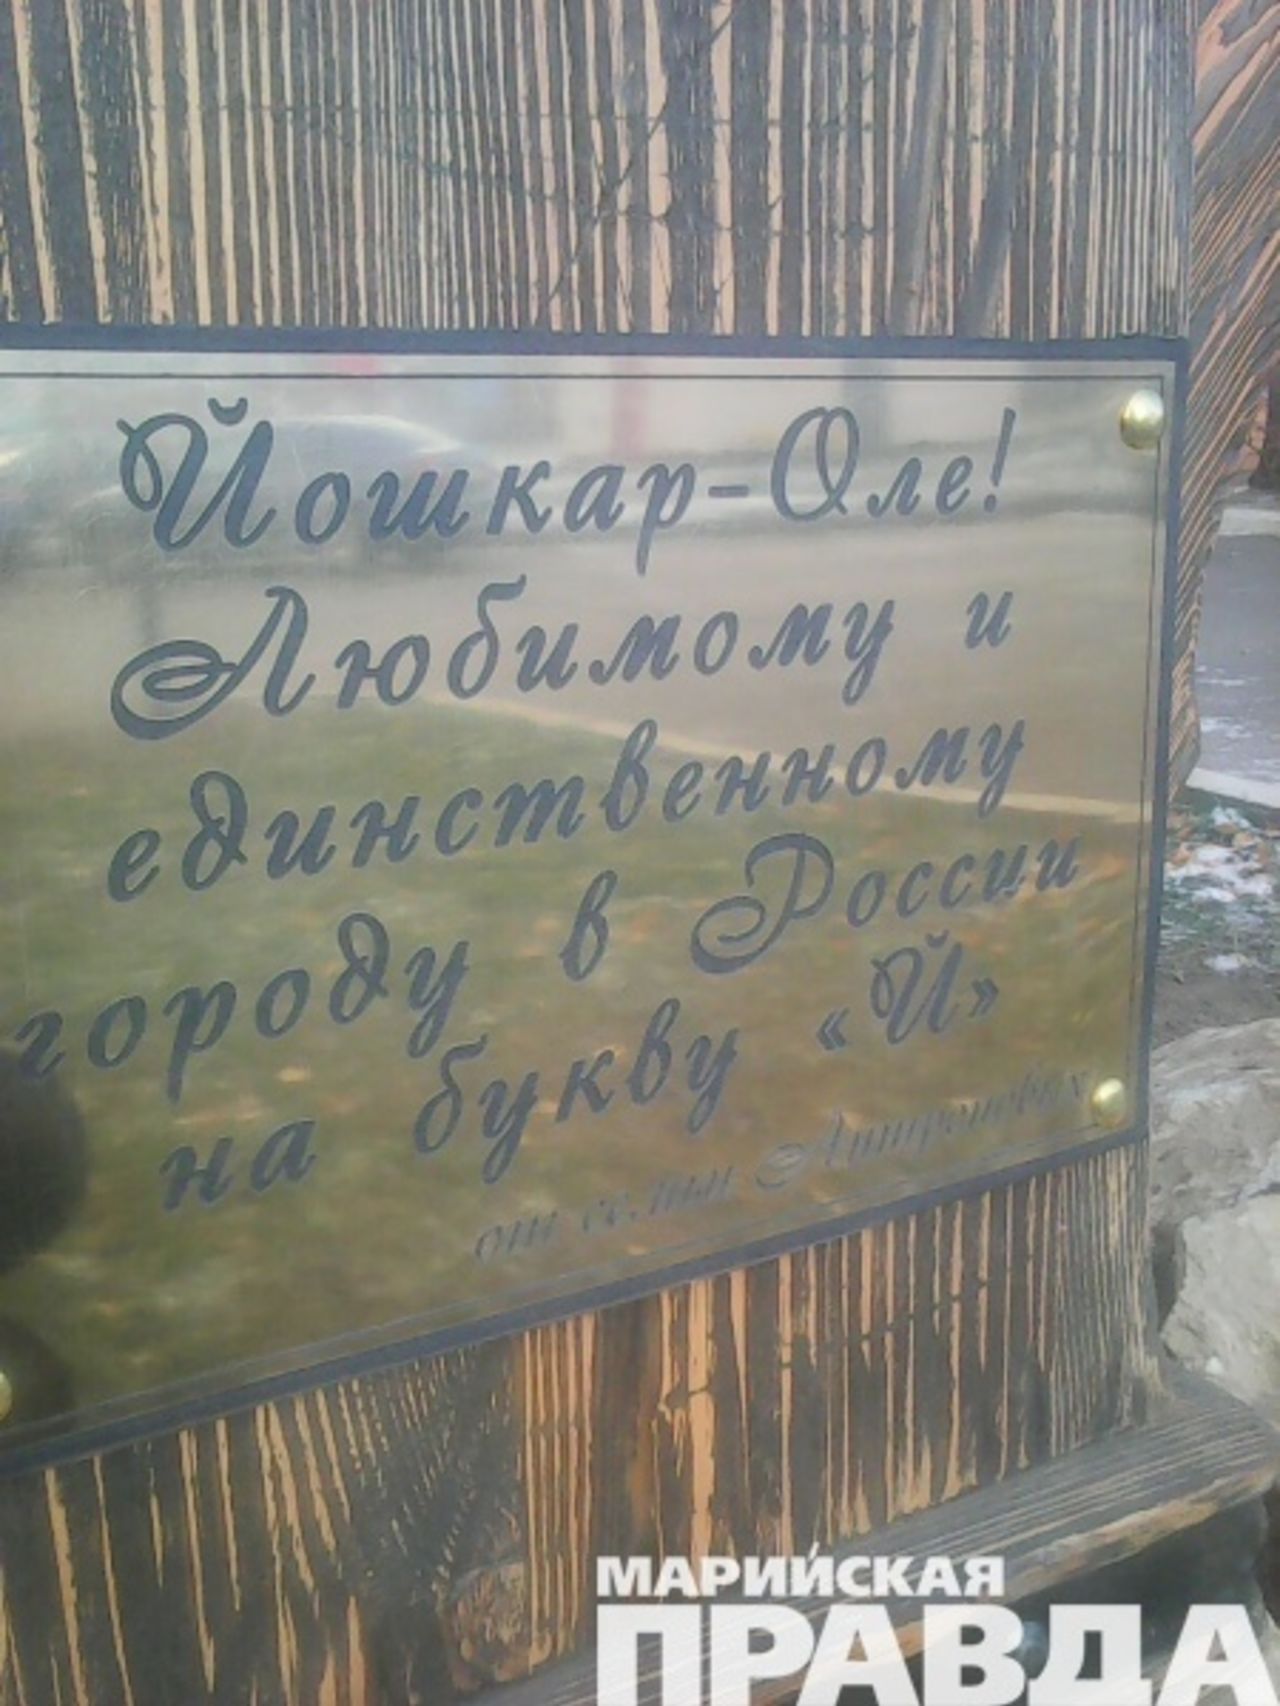 Йошкар-Оле!
Любимому и
единственному
городу в России
на букву «Й»
от семьи
МАРИЙСКАЯ
ПРАВДА